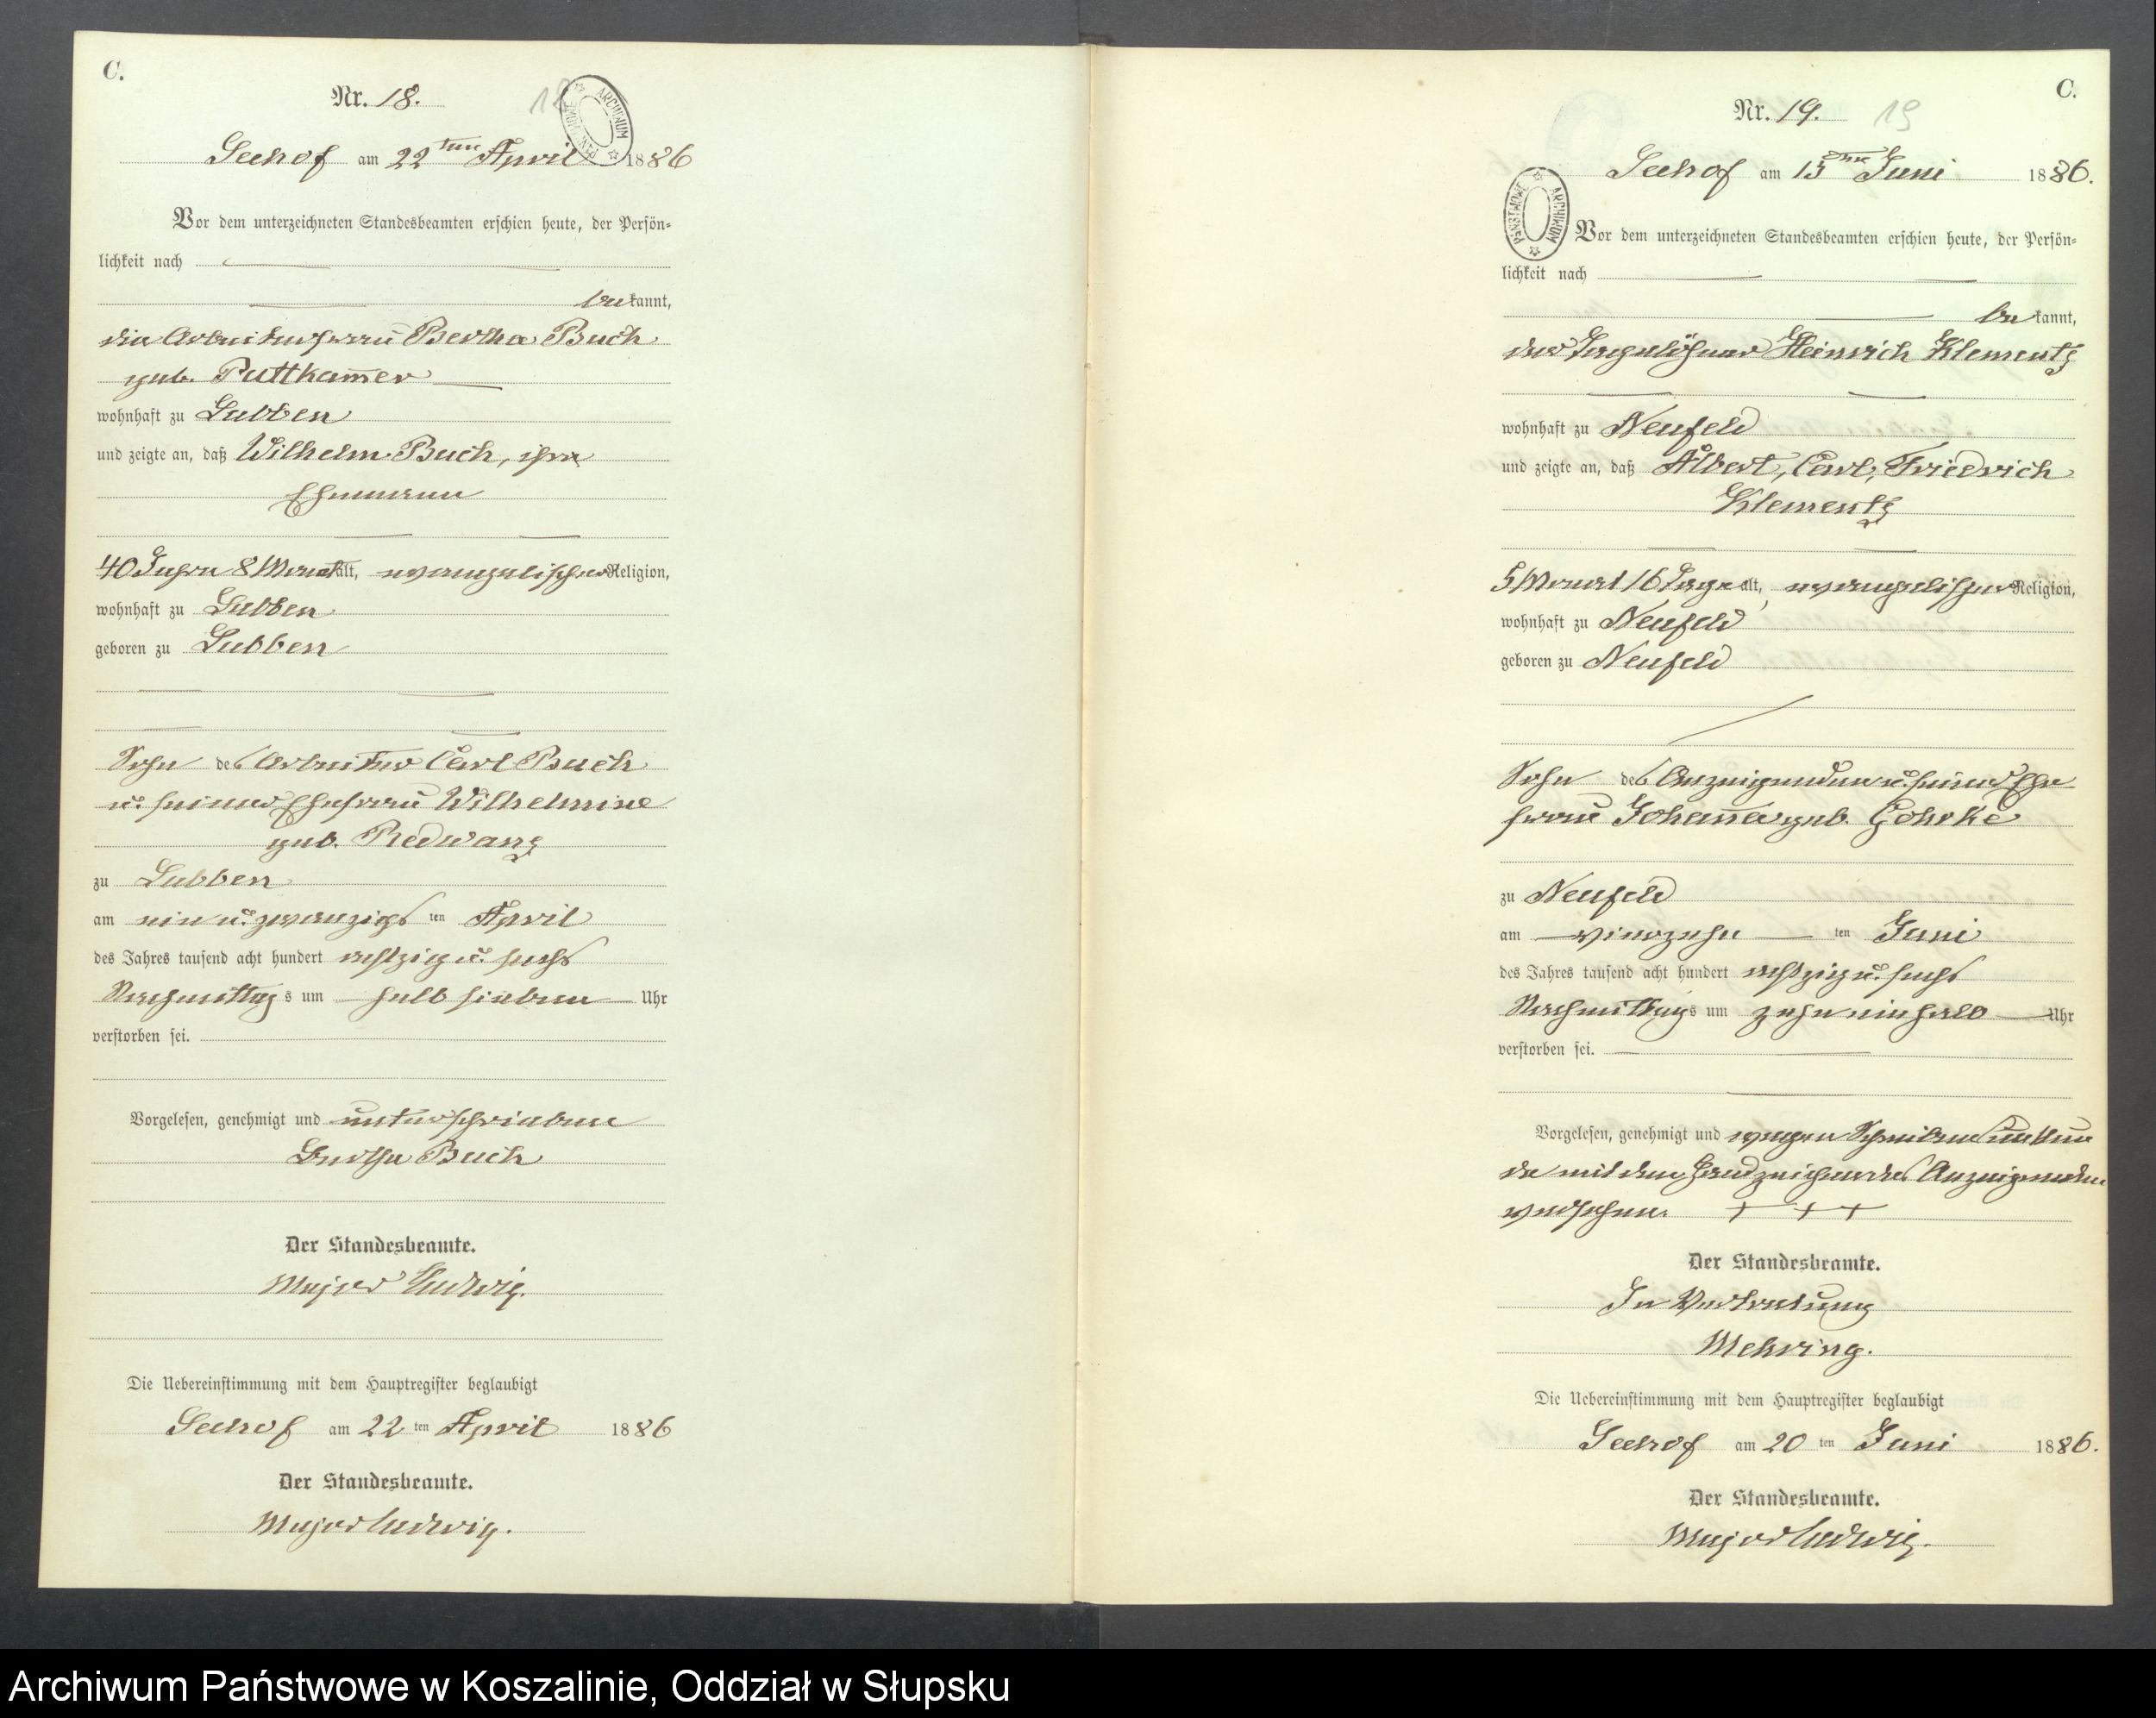 C.
Nr. 18.
18
ARCHIWUM PAŃSTWOWE
Seehof am 22ten April 1886
Vor dem unterzeichneten Standesbeamten erschien heute, der Persön-
lichkeit nach
bekannt,
die Arbeiterfrau Bertha Buch
geb. Puttkam̅er
wohnhaft zu Lubben
und zeigte an, daß Wilhelm Buch, ihr
Ehemann
40 Jahre 8 Monat alt, evangelischer Religion,
wohnhaft zu Lubben
geboren zu Lubben
Sohn des Arbeiter Carl Buch
u. seiner Ehefrau Wilhelmine
geb. Redwanz
zu Lubben
am ein u. zwanzigsten April
des Jahres tausend acht hundert achtzig u. sechs
Nachmittags um halb sieben Uhr
verstorben sei.
Vorgelesen, genehmigt und unterschrieben
Bertha Buch
Der Standesbeamte.
Major Ludwig.
Die Uebereinstimmung mit dem Hauptregister beglaubigt
Seehof am 22ten April 1886
Der Standesbeamte.
Major Ludwig.
C.
Nr. 19.
19
Seehof am 15ten Juni 1886.
PAŃSTWOWE ARCHIWUM
Vor dem unterzeichneten Standesbeamten erschien heute, der Persön-
lichkeit nach
bekannt,
der Tagelöhner Heinrich Klementz
wohnhaft zu Neufeld
und zeigte an, daß Albert, Carl, Friedrich
Klementz
5 Monat 16 Tage alt, evangelischer Religion,
wohnhaft zu Neufeld
geboren zu Neufeld
Sohn des Anzeigenden u. seiner Ehe
frau Johan̅a geb. Gohrke
zu Neufeld
am vierzehnten Juni
des Jahres tausend acht hundert achtzig u. sechs
Nachmittags um zehn einhalb Uhr
verstorben sei.
Vorgelesen, genehmigt und wegen Schreibensunkun
de mit dem Handzeichen des Anzeigenden
versehen. + + +
Der Standesbeamte.
In Vertretung
Mehring.
Die Uebereinstimmung mit dem Hauptregister beglaubigt
Seehof am 20ten Juni 1886.
Der Standesbeamte.
Major Ludwig.
Archiwum Państwowe w Koszalinie, Oddział w Słupsku